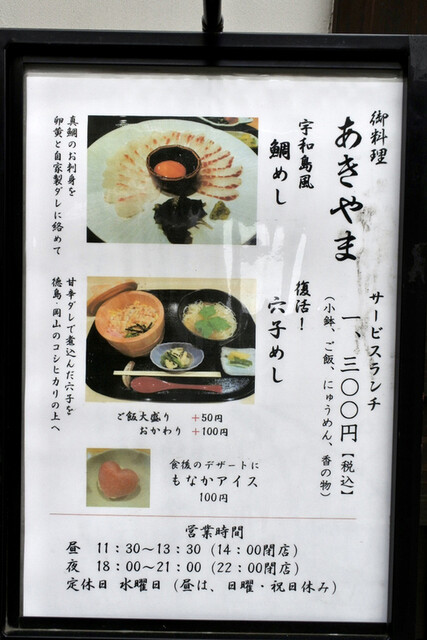 御料理
あきやま
サービスランチ
一、三〇〇円【税込】
(小鉢、ご飯、にゅうめん、香の物)
宇和島風
鯛めし
真鯛のお刺身を
卵黄と自家製ダレに絡めて
復活!
穴子めし
甘辛ダレで煮込んだ穴子を
徳島・岡山のコシヒカリの上へ
ご飯大盛り +50円
おかわり +100円
食後のデザートに
もなかアイス
100円
営業時間
昼 11:30〜13:30(14:00閉店)
夜 18:00〜21:00(22:00閉店)
定休日 水曜日(昼は、日曜・祝日休み)